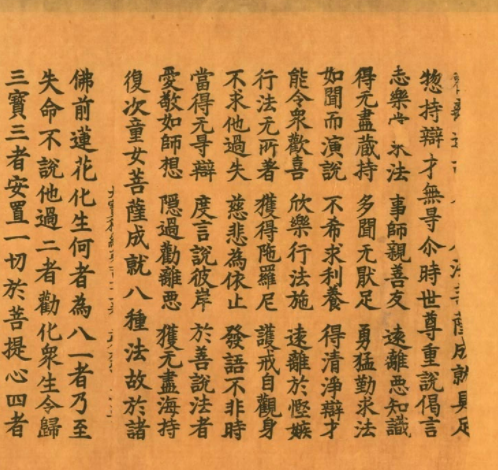 菩薩成就具足
惣持辯才無㝵尒時世尊重說偈言
志樂 法 事師親善友 遠離惡知識
得无盡蔵持 多聞无猒足 勇猛勤求法
如聞而演說 不希求利養 得清淨辯才
能令衆歡喜 欣樂行法施 遠離於慳嫉
行法无所著 獲得陁羅尼 護戒自觀身
不求他過失 慈悲為依止 發語不非時
當得无㝵辯 度言說彼岸 於善說法者
愛敬如師想 隱過勸離惡 獲无盡海持
復次童女菩薩成就八種法故於諸
佛前蓮花化生何者為八一者乃至
失命不說他過二者勸化衆生令歸
三寶三者安置一切於菩提心四者